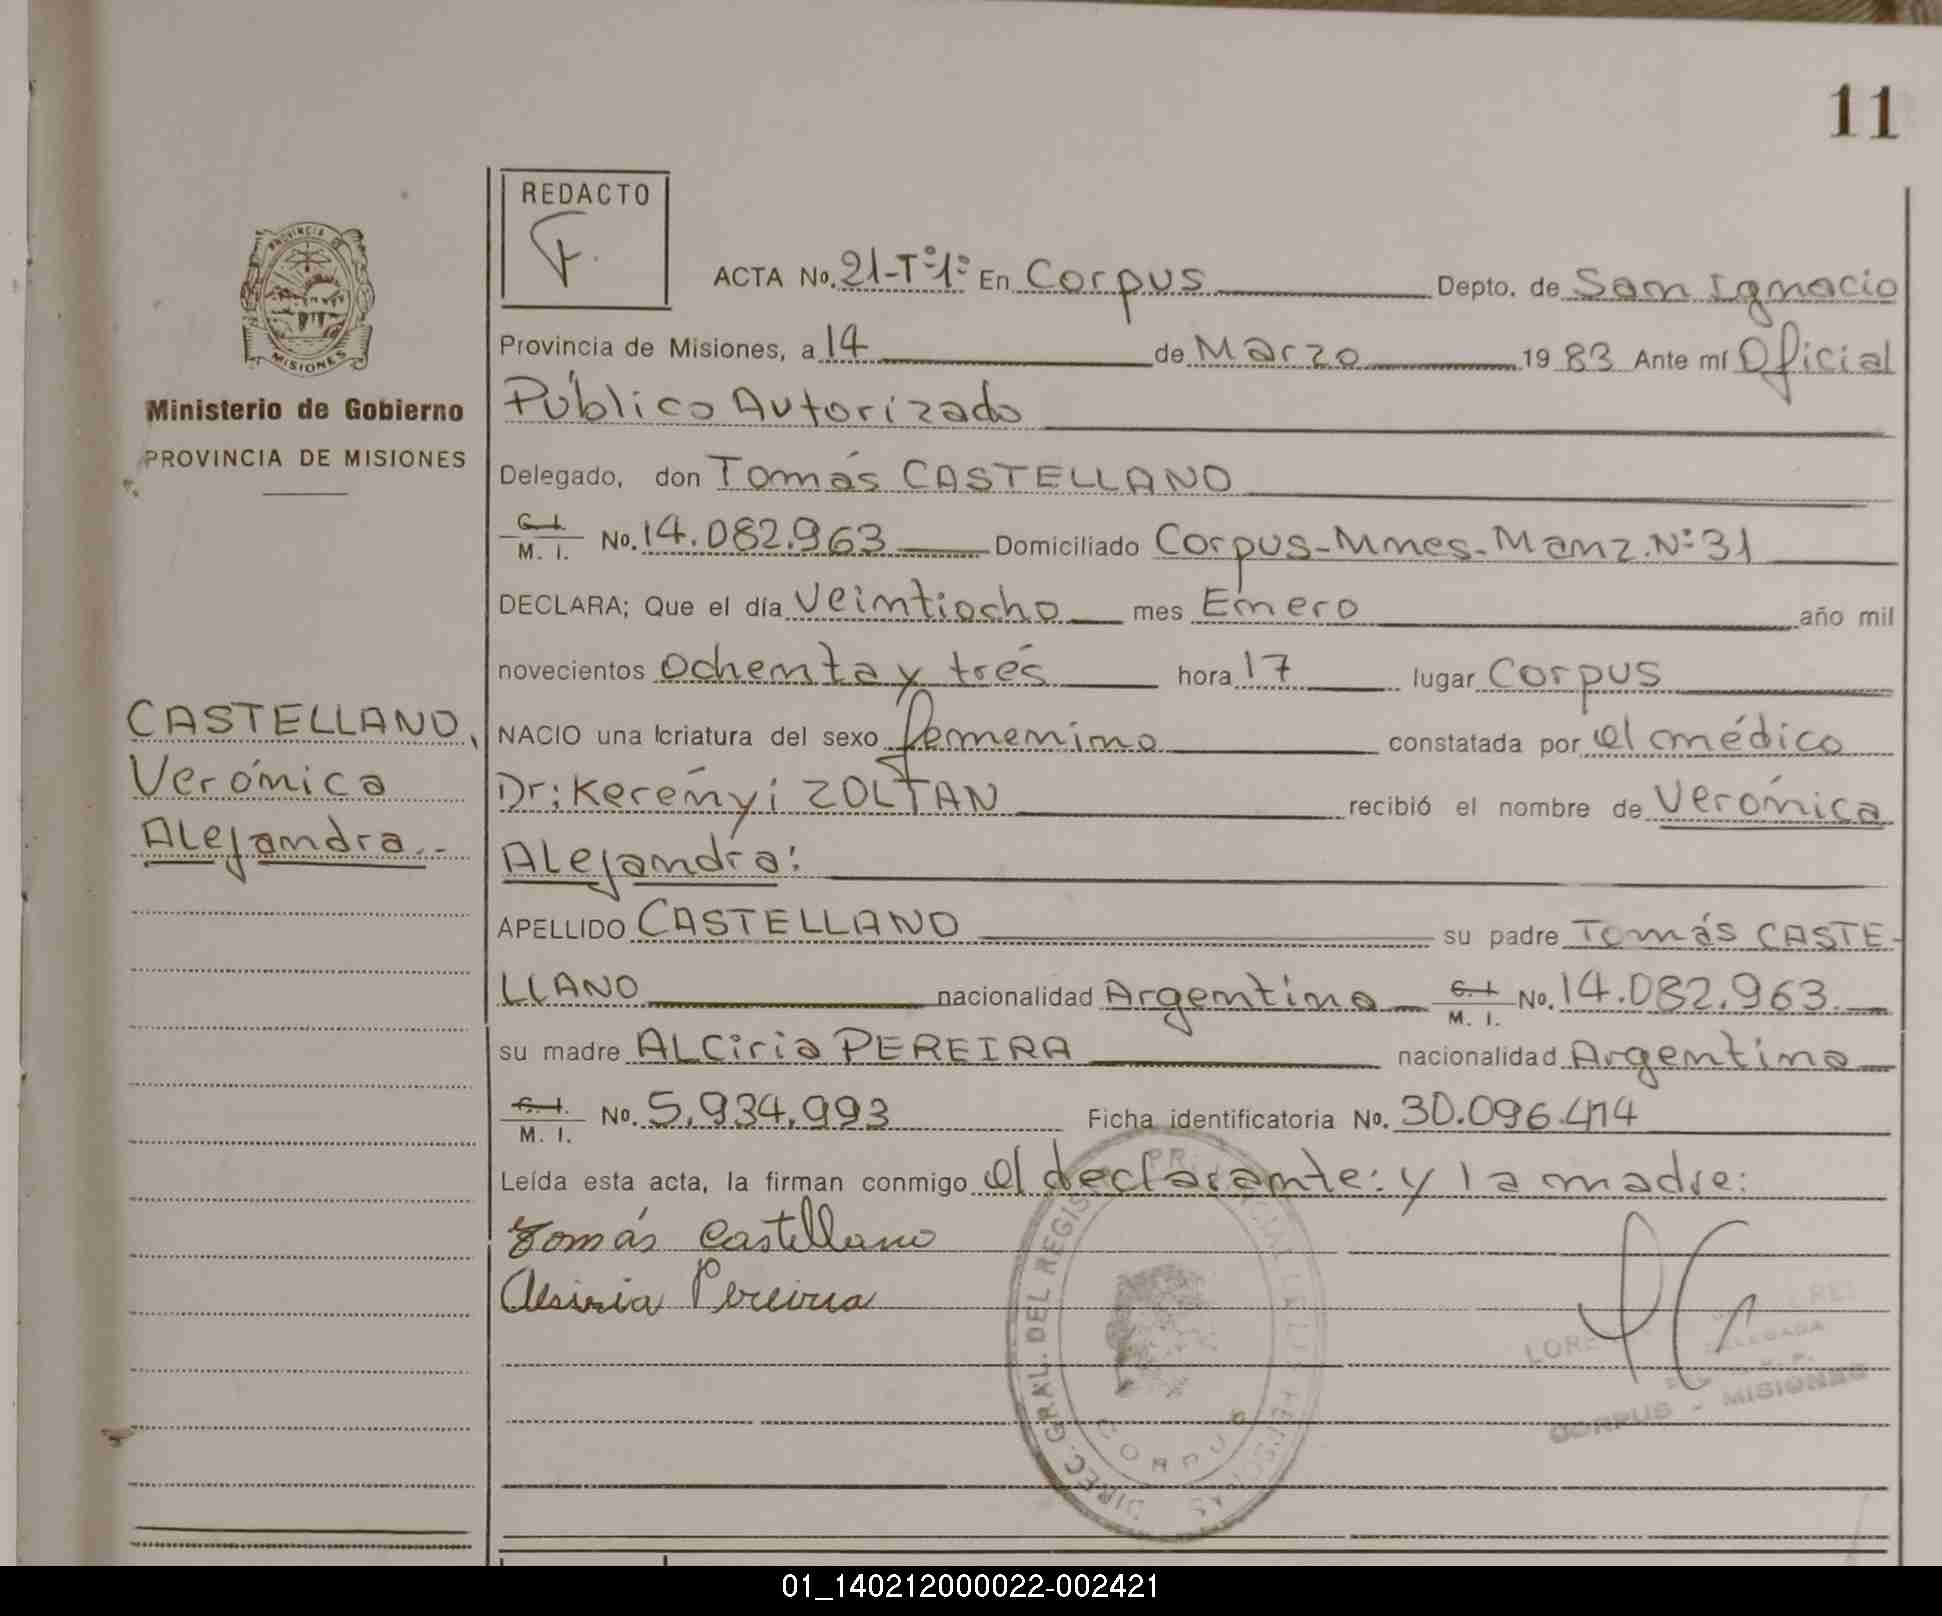 11
REDACTO
PROVINCIA DE
MISIONES
ACTA No. 21-Tº1º En Corpus Depto. de San Ignacio
Provincia de Misiones, a 14 de Marzo 1983 Ante mí Oficial
Ministerio de Gobierno
Público Autorizado
PROVINCIA DE MISIONES
Delegado, don Tomás CASTELLANO
C. I. M. I. No. 14.082.963 Domiciliado Corpus-Mnes-Manz.Nº31
DECLARA; Que el día veintiocho mes Enero año mil
novecientos ochenta y trés hora 17 lugar Corpus
CASTELLANO,
NACIO una criatura del sexo femenino constatada por el médico
Verónica
Dr: Kerényi ZOLTAN recibió el nombre de Verónica
Alejandra.-
Alejandra:
APELLIDO CASTELLANO su padre Tomás CASTE-
LLANO nacionalidad Argentina C. I. M. I. No. 14.082.963.
su madre ALCiria PEREIRA nacionalidad Argentina
C. I. M. I. No. 5.934.993 Ficha identificatoria No. 30.096.414
Leída esta acta, la firman conmigo el declarante: y la madre:
Tomás Castellano
Alsiria Pereira
DIREC. GRAL. DEL REGIS PERSONAS
CORPUS
CORPUS - MISIONES
01_140212000022-002421